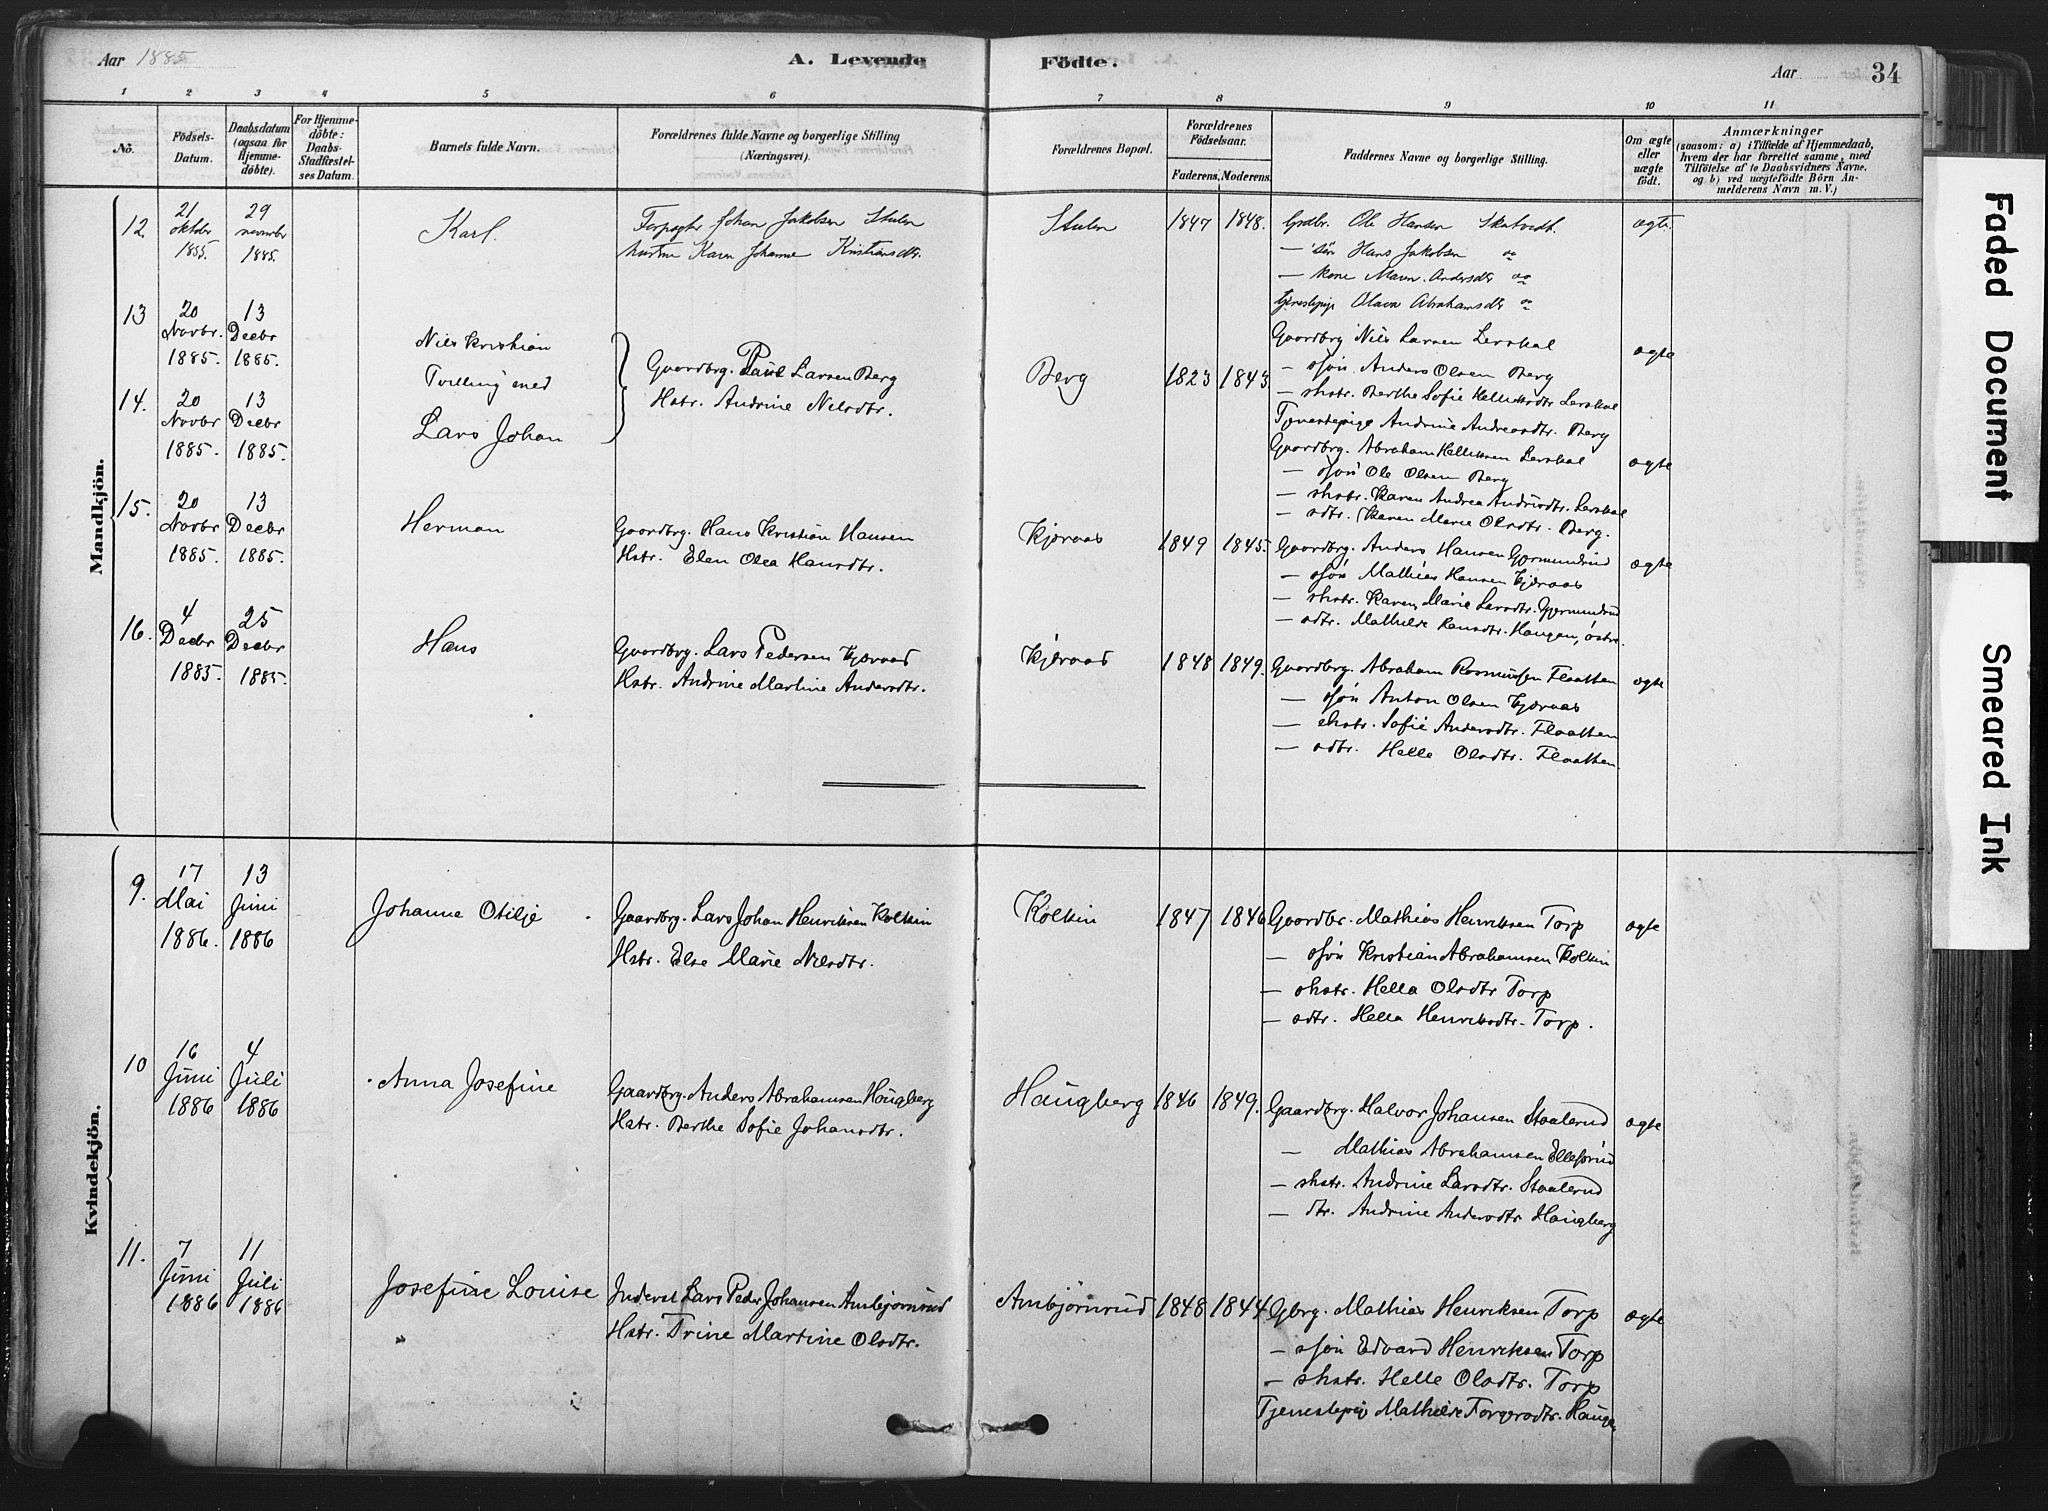 Aar 1885
A. Levende Födte.
Aar 34
1 2 3 4 5 6 7 8 9 10 11
No.
Födsels-Datum.
Daabsdatum (ogsaa for Hjemme-döbte).
For Hjemme-döbte: Daabs-Stadfæstel-ses Datum.
Barnets fulde Navn.
Forældrenes fulde Navne og borgerlige Stilling (Næringsvei).
Forældrenes Bopæl.
Forældrenes Födselsaar.
Faderens. Moderens.
Faddernes Navne og borgerlige Stilling.
Om ægte eller uægte födt.
Anmærkninger
(saasom: a) i Tilfælde af Hjemmedaab, hvem der har forrettet samme, med Tilföielse af to Daabsvidners Navne, og b) ved uægtefödte Börn An-melderens Navn m. V.)
Mandkjön.
12. 21 oktober 1885. 29 november 1885. Karl.
Forpagter Johan Jakobsen Stulen
hustru Karen Johanne Kristiansdtr.
Stulen 1847 1848.
Grdbr. Ole Hansen Skatvedt. ægte
— sön Hans Jakobsen
— kone Maren Andersdtr
tjenestepige Olava Abrahamsdtr
13 20 Novbr. 1885. 13 Decbr 1885. Nils Kristian
Tvilling med
14. 20 Novbr 1885. 13 Decbr 1885. Lars Johan
Gaardbrg. Paul Larsen Berg
Hstr. Andrine Nilsdtr.
Berg 1823 1843
Gaardbrg Nils Larsen Lerskal ægte
— ssøn Anders Olsen Berg
— shstr. Berthe Sofie Helleksdtr Lerskal
Tjenestepige Andrine Andreasdtr. Berg
Gaardbrg. Abraham Helleksen Lerskal ægte
— ssøn Ole Olsen Berg
— shstr. Karen Andrea Andersdtr. Lerskal
— sdtr. Karen Marie Olsdtr. Berg.
15. 20 Novbr 1885. 13 Decbr 1885. Herman
Gaardbrg. Hans Kristian Hansen
Hstr. Elen Olea Hansdtr.
Kjøraas 1849 1845.
Gaardbrg. Anders Hansen Gjermundrud ægte
— ssøn Mathias Hansen Kjøraas
— shstr. Karen Marie Larsdtr. Gjermundrud
— sdtr. Mathilde Hansdtr. Haugen, østre.
16. 4 Decbr 1885. 25 Decbr 1885. Hans
Gaardbrg. Lars Pedersen Kjøraas
Hstr. Andrine Martine Andersdtr.
Kjøraas 1848 1849.
Gaardbrg. Abraham Rasmussen Flaatten ægte
— ssøn Anton Olsen Kjøraas
— shstr. Sofie Andersdtr. Flaatten
— sdtr. Helle Olsdtr. Flaatten.
Kvindekjön.
9. 17 Mai 1886. 13 Juni 1886 Johanne Otilje
Gaardbrg. Lars Johan Henriksen Kolkin
Hstr. Else Marie Nilsdtr.
Kolkin 1847 1846
Gaardbr. Mathias Henriksen Torp ægte
— ssøn Kristian Abrahamsen Kolkin
— shstr. Hella Olsdtr Torp
— sdtr. Hella Henriksdtr. Torp.
10 16 Juni 1886 4 Juli 1886 Anna Josefine
Gaardbrg. Anders Abrahamsen Haugberg
Hstr. Berthe Sofie Johansdtr.
Haugberg 1846 1849.
Gaardbrg. Halvor Johansen Staalerud ægte
— Mathias Abrahamsen Ellefsrud
— shstr. Andrine Larsdtr. Staalerud
— dtr. Andrine Andersdtr Haugberg
11. 7 Juni 1886 11 Juli 1886 Josefine Louise
Inderst Lars Peder Johansen Ambjørnrud
Hstr. Trine Martine Olsdtr.
Ambjørnrud 1848 1844
Gbrg. Mathias Henriksen Torp ægte
— ssøn Edvard Henriksen Torp
— shstr. Helle Olsdtr. Torp
Tjenestepig Mathilde Torgersdtr. Haugen
Faded Document
Smeared Ink